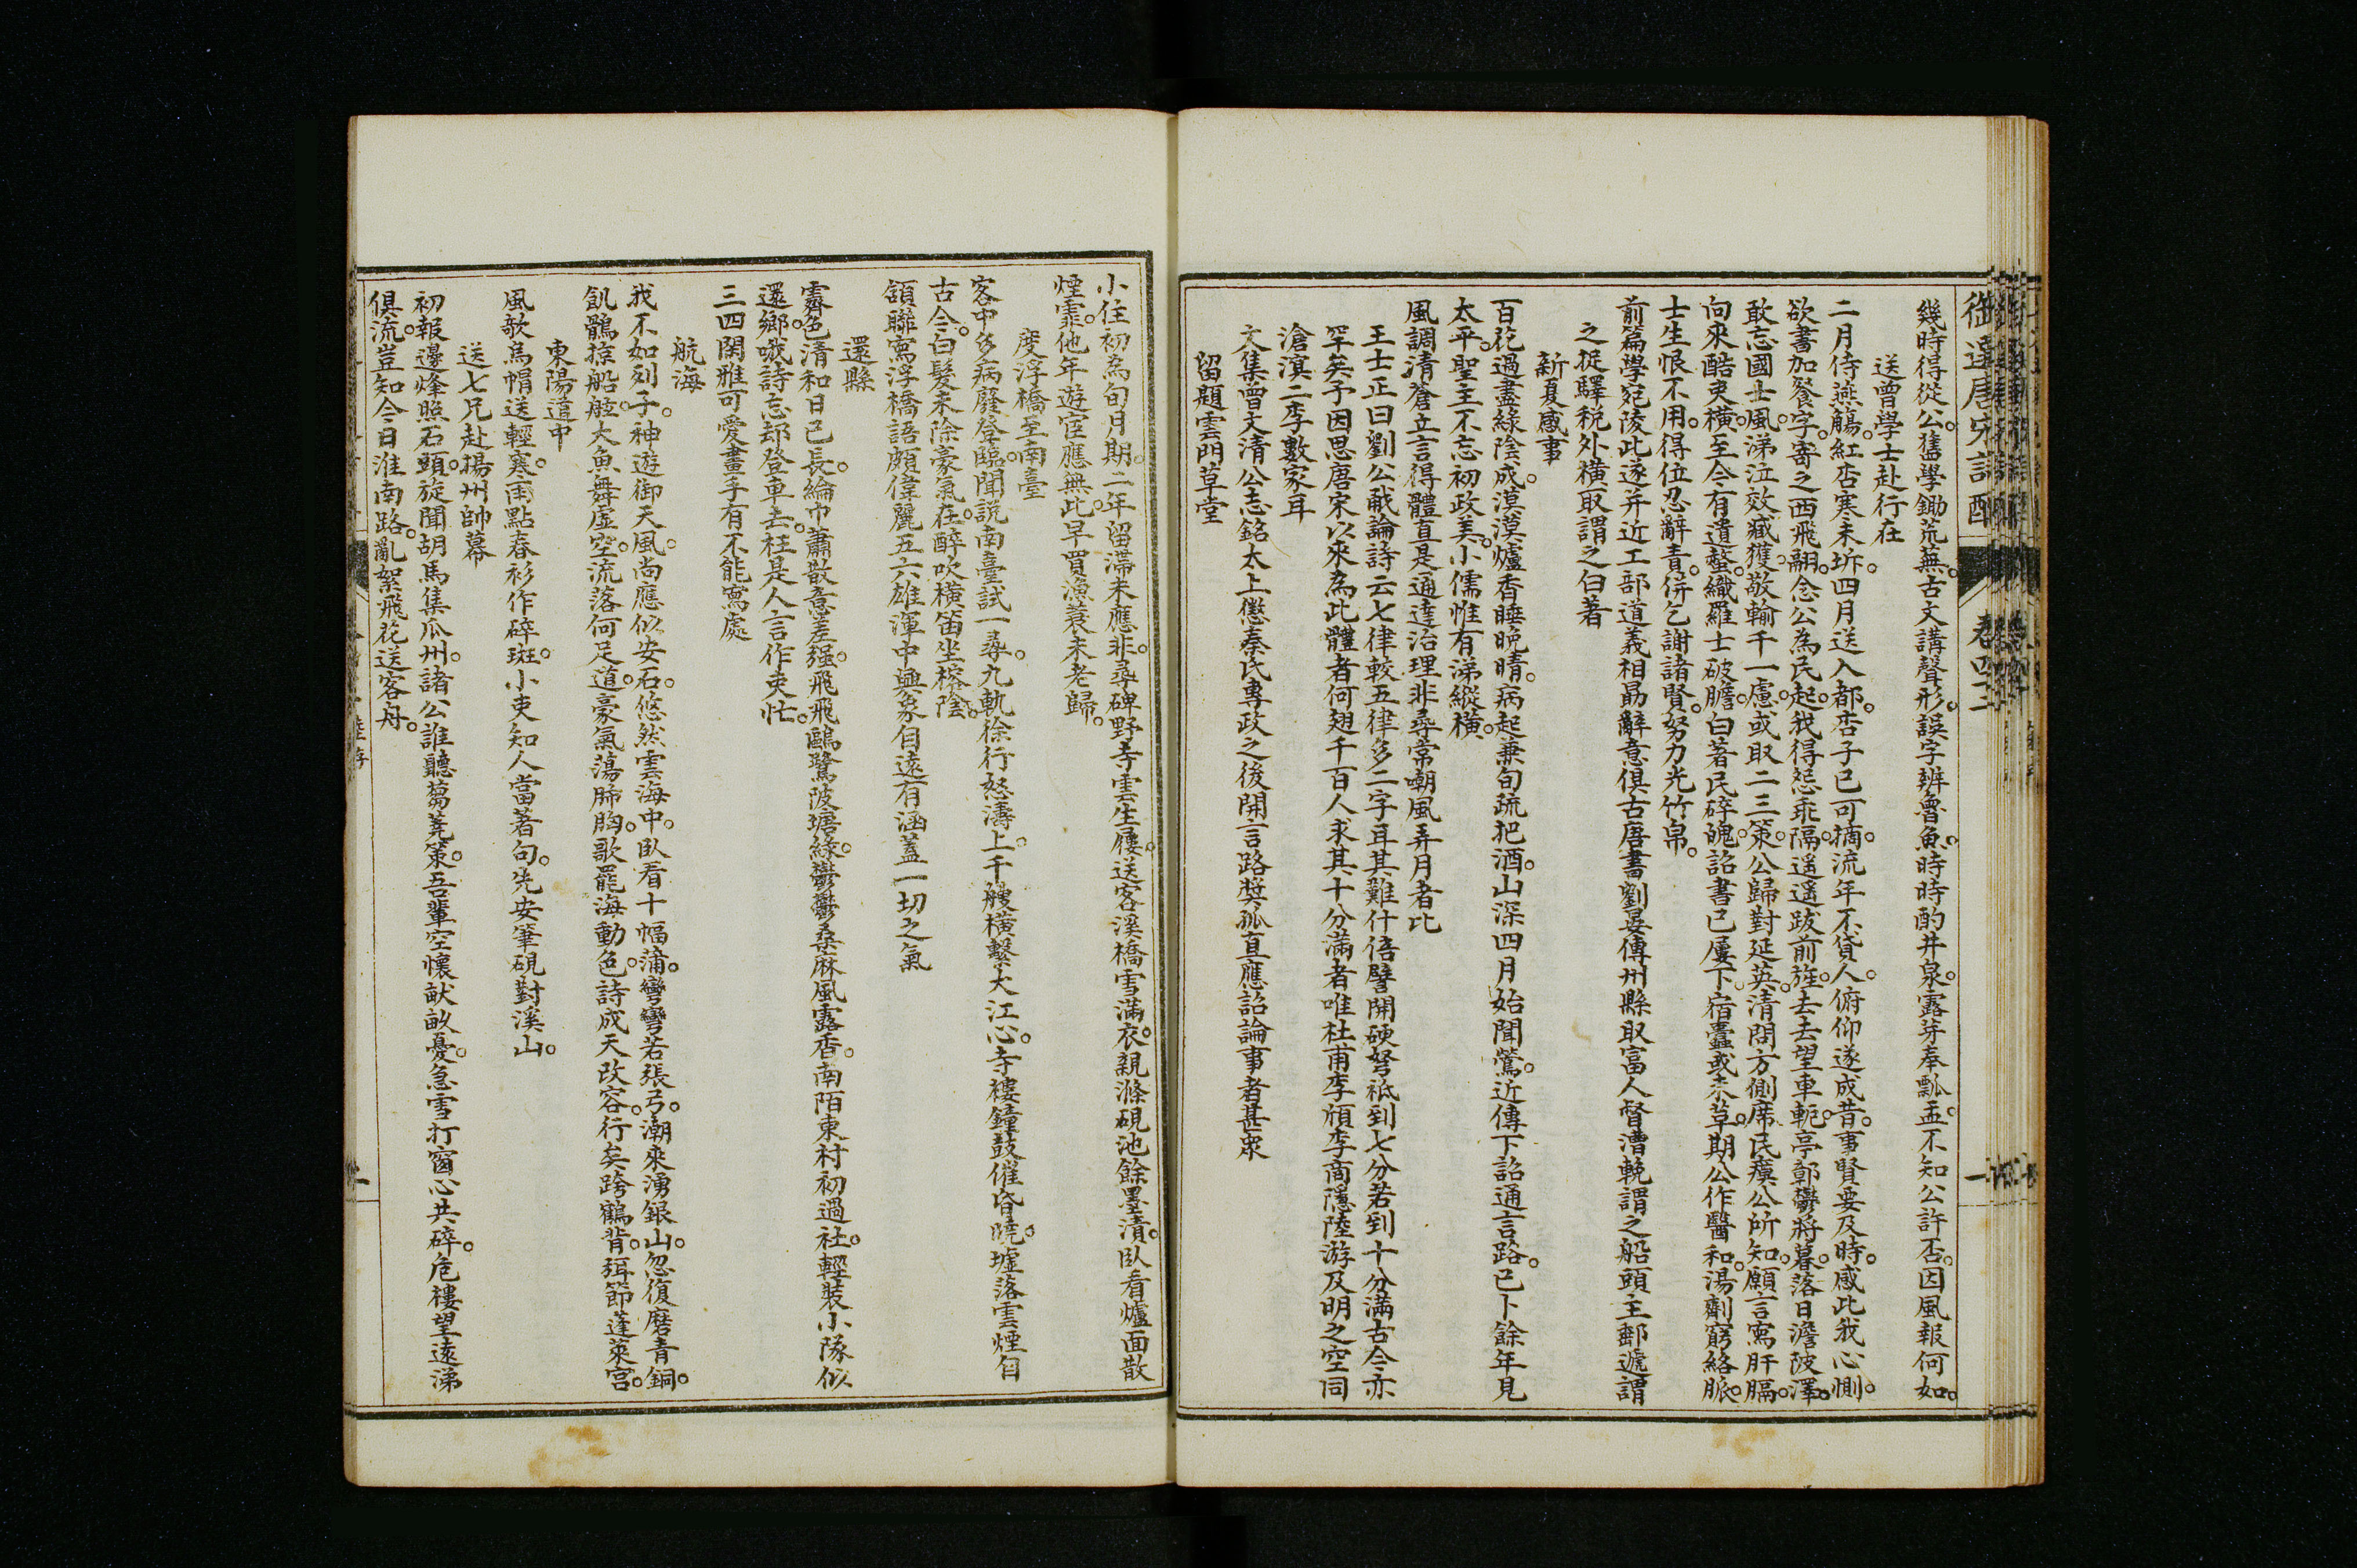 御選唐宋詩醇
卷四二
一
幾時得從公。舊學鋤荒蕪。古文講聲形。誤字辨魯魚。時時酌井泉。露芽奉瓢盂。不知公許否。因風報何如。
送曾學士赴行在
二月侍燕觴。紅杏寒未坼。四月送入都。杏子已可摘。流年不貸人。俯仰遂成昔。事賢要及時。感此我心惻。
欲書加餐字。寄之西飛翮。念公為民起。我得怨乖隔。遥遥跋前旌。去去望車軛。亭鄣鬱將暮。落日澹陂澤。
敢忘國士風。涕泣效臧獲。敬輸千一慮。或取二三策。公歸對延英。清問方側席。民瘼公所知。願言寫肝膈。
向來酷吏橫。至今有遺螫。織羅士破膽。白著民碎魄。詔書已屢下。宿蠹或未革。期公作醫和。湯劑窮絡脈。
士生恨不用。得位忍辭責。併乞謝諸賢。努力光竹帛。
前篇學宛陵此遂并近工部道義相勗辭意俱古唐書劉晏傳州縣取富人督漕輓謂之船頭主郵遞謂
之捉驛稅外横取謂之白著
新夏感事
百花過盡綠陰成。漠漠爐香睡晚晴。病起兼旬疏把酒。山深四月始聞鶯。近傳下詔通言路。已卜餘年見
太平。聖主不忘初政美。小儒惟有涕縱橫。
風調清蒼立言得體直是通達治理非尋常嘲風弄月者比
王士正曰劉公㦸論詩云七律較五律多二字耳其難什倍譬開硬弩祗到七分若到十分滿古今亦
罕矣予因思唐宋以來為此體者何翅千百人求其十分滿者唯杜甫李頎李商隱陸游及明之空同
滄溟二李數家耳
文集曾文清公志銘太上懲秦氏專政之後開言路奬孤直應詔論事者甚衆
留題雲門草堂
小住初為旬月期。二年留滯未應非。尋碑野寺雲生屨。送客溪橋雪滿衣。親滌硯池餘墨漬。臥看爐面散
煙霏。他年遊宦應無此。早買漁蓑未老歸。
度浮橋至南臺
客中多病廢登臨。聞說南臺試一尋。九軌徐行怒濤上。千艘横繫大江心。寺樓鐘鼓催昏曉。墟落雲煙自
古今。白髮未除豪氣在。醉吹横笛坐榕陰。
頷聯寫浮橋語頗偉麗五六雄渾中興象自遠有涵蓋一切之氣
還縣
霽色清和日已長。綸巾蕭散意差强。飛飛鷗鷺陂塘綠。鬱鬱桑麻風露香。南陌東村初過社。輕裝小隊似
還鄉。哦詩忘却登車去。枉是人言作吏忙。
三四閑雅可愛畫手有不能寫處
航海
我不如列子。神遊御天風。尚應似安石。悠然雲海中。臥看十幅蒲。彎彎若張弓。潮來湧銀山。忽復磨青銅。
飢鶻掠船舷。大魚舞虛空。流落何足道。豪氣蕩肺胸。歌罷海動色。詩成天改容。行矣跨鶴背。弭節蓬萊宫。
東陽道中
風欹烏帽送輕寒。雨點春衫作碎斑。小吏知人當著句。先安筆硯對溪山。
送七兄赴揚州帥幕
初報邊烽照石頭。旋聞胡馬集瓜州。諸公誰聽芻蕘策。吾輩空懷畎畝憂。急雪打窗心共碎。危樓望遠涕
俱流。豈知今日淮南路。亂絮飛花送客舟。